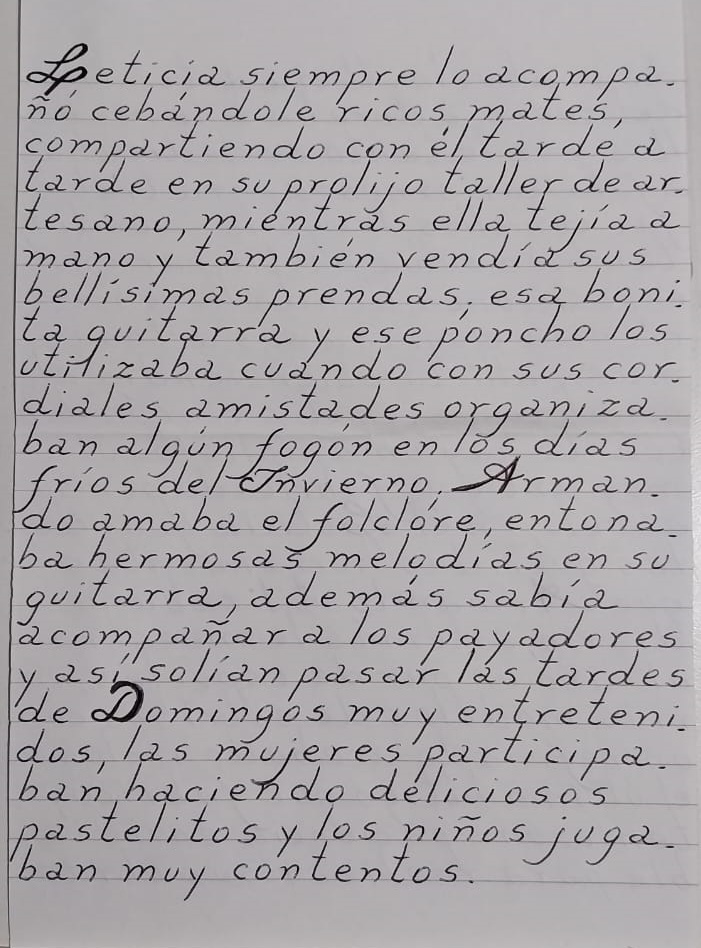 Leticia siempre lo acompa-
ñó cebándole ricos mates,
compartiendo con él, tarde a
tarde en su prolijo taller de ar-
tesano, mientras ella tejía a
mano y también vendía sus
bellísimas prendas; esa boni-
ta guitarra y ese poncho los
utilizaba cuando con sus cor-
diales amistades organiza-
ban algún fogón en los días
fríos del Invierno. Arman-
do amaba el folclore, entona-
ba hermosas melodías en su
guitarra, además sabía
acompañar a los payadores
y así, solían pasar las tardes
de Domingos muy entreteni-
dos, las mujeres participa-
ban haciendo deliciosos
pastelitos y los niños juga-
ban muy contentos.